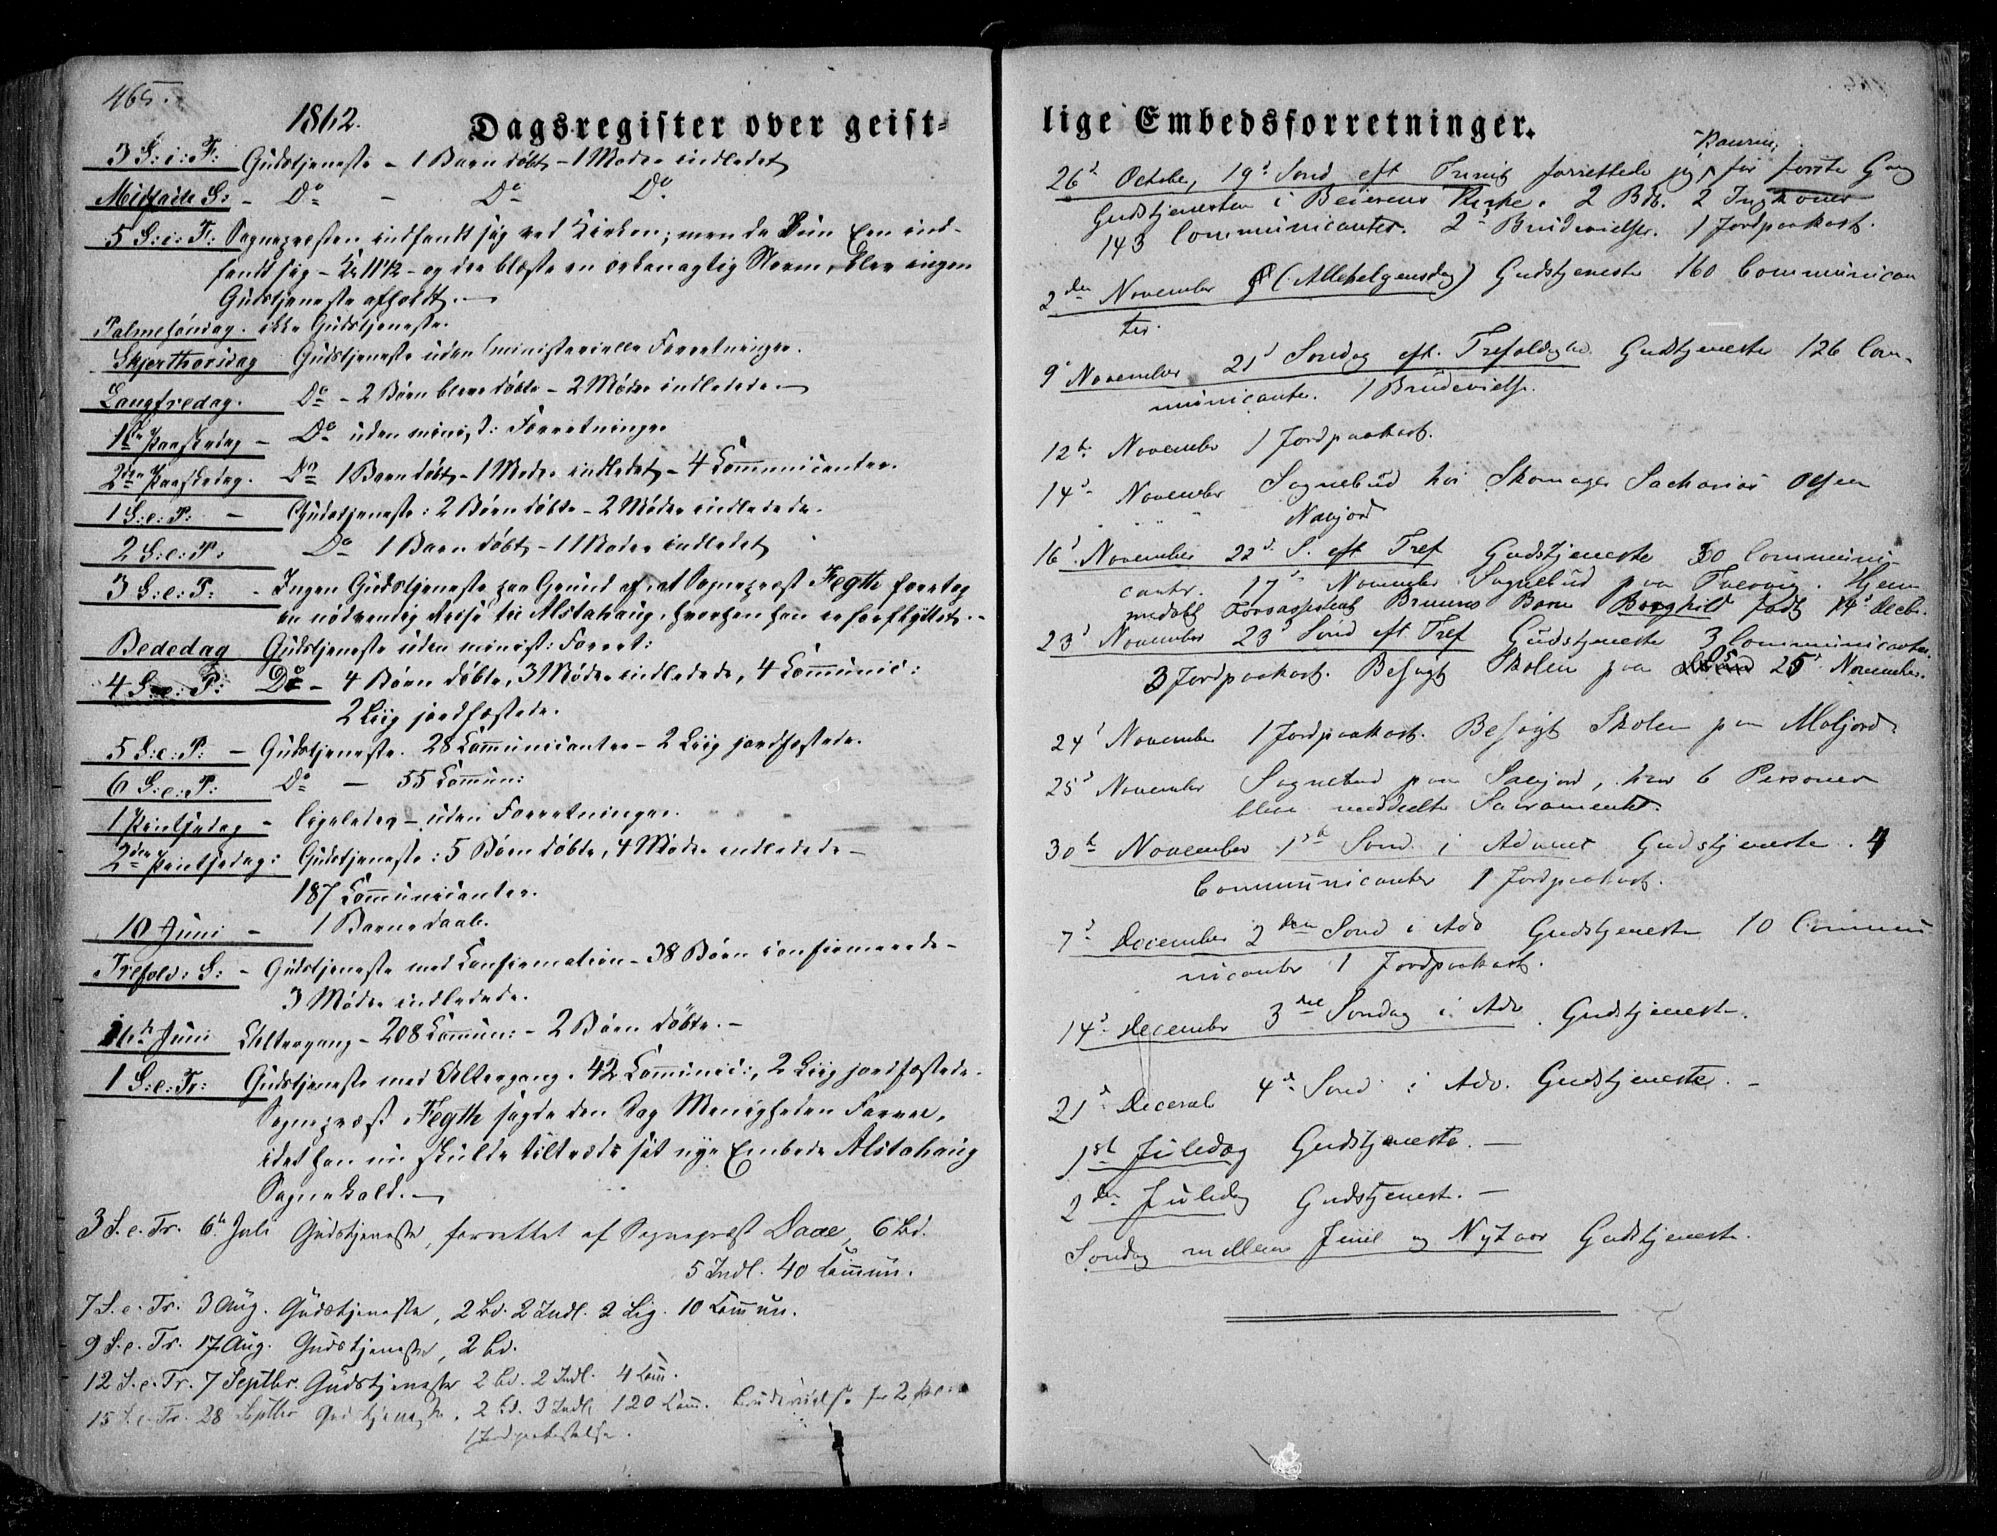 465.
1862. Dagsregister over geist-
3 S: i: F: Gudstjeneste - 1 Barn døbt - 1 Moder indledet
Midfaste S: - Do - Do Do
5 S: i: F: Sognepræsten indfandt sig ved Kirken; men da kun Een ind-
fandt sig - Kl 11½ - og der blæste en orkanagtig Storm, blev ingen
Gudstjeneste afholdt. -
Palmesøndag. ikke Gudstjeneste.
Skjerthorsdag Gudstjeneste uden ministerielle Forretninger.
Langfredag. Do - 2 Børn bleve døbte - 2 Mødre indledede. -
1ste Paaskedag - Do uden minist: Forretninger
2den Paaskedag. Do 1 Barn døbt - 1 Moder indledet - 4 Communicanter.
1 S: e: P: - Gudstjeneste: 2 Børn døbte - 2 Mødre indledede.
2 S: e: P: Do 1 Barn døbt - 1 Moder indledet
3 S: e: P: - Ingen Gudstjeneste paa Grund af, at Sognepræst Fegth foretog
en nødvendig Reise til Alstahaug, hvorhen han er forflyttet. -
Bededag Gudstjeneste uden minist: Forret:
4 S: e: P: Do - 4 Børn døbte, 3 Mødre indledede, 4 Communic:
2 Liig jordfæstede.
5 S: e: P: - Gudstjeneste. 28 Communicanter - 2 Liig jordfæstede.
6 S: e: P: Do - 55 Commun:
1 Pintsedag - ligeledes - uden Forretninger.
2den Pintsedag: Gudstjeneste: 5 Børn døbte, 4 Mødre indledede -
187 Communicanter.
10 Juni - 1 Barnedaab.
Trefold: S: - Gudstjeneste med Confirmation - 38 Børn confirmerede -
3 Mødre indledede.
16de Juni Altergang - 208 Commun: - 2 Børn døbte. -
1 S: e: Tr: Gudstjeneste med Altergang. 42 Communic:, 2 Liig jordfæstede.
Sognepræst Fegth sagde den Dag Menigheden Farvel,
idet han nu skulde tiltræde sit nye Embede Alstahaug
Sognekald. -
3 S. e. Tr. 6te Juli Gudstjeneste, forrettet af Sognepræst Daae, 6 Bd.
5 Indl. 40 Commun.
7 S. e. Tr. 3 Aug. Gudstjeneste, 2 Bd. 2 Indl. 2 Lig. 10 Commun.
9 S. e. Tr. 17 Aug. Gudstjeneste, 2 Bd.
12 S. e. Tr. 7 Septbr. Gudstjeneste 2 Bd. 2 Indl. 4 Comm.
15 S. e. Tr. 28 Septbr Gudstjeneste. 2 Bd. 3 Indl. 120 Comm. Brudevielse for 2 Par
1 Jordpaakastelse.
lige Embedsforretninger.
26d October, 19d Sønd eft Trinit forrettede jeg, for første Gang
Gudstjenesten i Beierens Kirke. 2 Bdb. 2 Ingkoner
143 Communicanter. 2 Brudevielser. 1 Jordpaakast.
2den November (Allehelgensdag) Gudstjeneste 160 Communican
ter.
9d November 21d Søndag eft. Trefoldighd Gudstjeneste 126 Com-
municanter. 1 Brudevielse.
12te November 1 Jordpaakast.
14d November Sognebud hos Skomager Sacharias Olsen
16d November 22d S. eft Tref Gudstjeneste 30 Communi-
canter. 17d November Sognebud paa Tvervig. Hjem
medøbt Barn Borghild født 14d Decbr.
23d November 23d Sønd eft Tref Gudstjeneste 3 Communicanter.
3 Jordpaakast. Besøgt Skolen paa 25d November.
24d November 1 Jordpaakast. Besøgt Skolen paa Moljord
25d November Sognebud paa, hvor 6 Personer
bleve meddelte Sacramentet.
30te November 1ste Sønd. i Advent Gudstjeneste. 4
Communicanter 1 Jordpaakast.
7d December 2den Sønd i Adv Gudstjeneste 10 Commu
nicanter 1 Jordpaakast.
14d December 3die Søndag i Adv. Gudstjeneste.
21d Decemb 4d Sønd i Adv. Gudstjeneste. -
1ste Juledag Gudstjeneste. -
2den Juledag Gudstjeneste. -
Søndag mellem Juul og Nytaar Gudstjeneste.